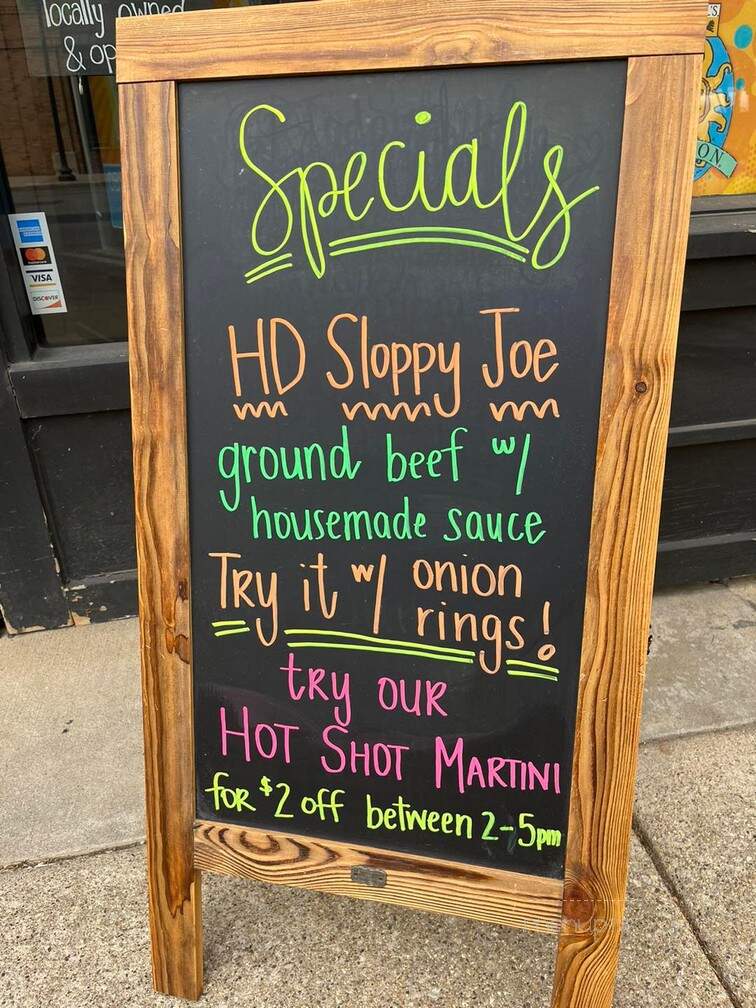 locally owned
& op
AMERICAN EXPRESS
VISA
DISCOVER
ON.
Specials
HD Sloppy Joe
ground beef w/
housemade sauce
Try it w/ onion
rings!
try our
HOT SHOT MARTINI
for $2 off between 2-5pm